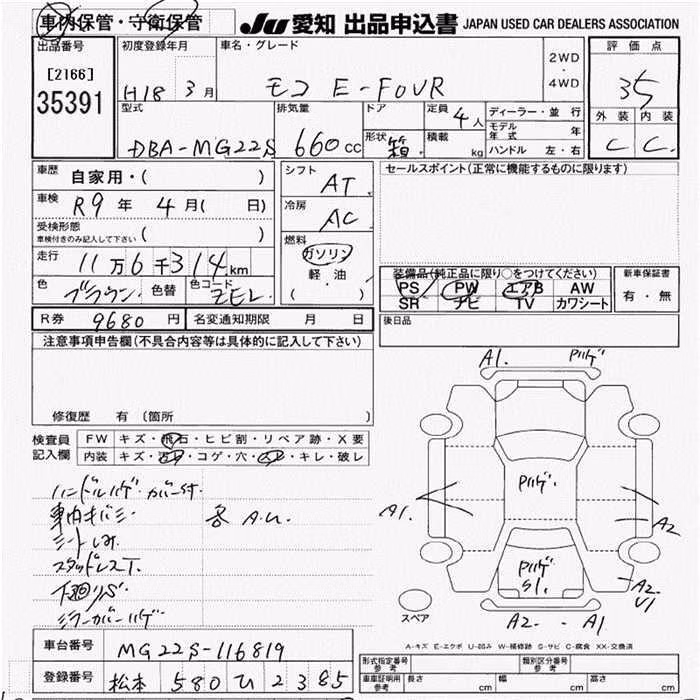 車内保管・守衛保管
JU 愛知 出品申込書 JAPAN USED CAR DEALERS ASSOCIATION
出品番号 初度登録年月 車名・グレード 2WD・4WD 評価点
[2166] H18 3月 モコ E-FOUR 35
35391 型式 排気量 ドア 定員 4人 ディーラー・並行 外装 内装
モデル年式 年
DBA-MG22S 660cc 形状 箱 積載 kg ハンドル 左・右 C C
車歴 自家用・( ) シフト AT セールスポイント(正常に機能するものに限ります)
車検 R9年 4月( 日) 冷房 AC
受検形態 ( )
車検付きのみ記入して下さい
燃料 ガソリン
走行 11万6千314km 軽油 装備品(純正品に限り○をつけてください) 新車保証書
色 ブラウン 色替 色コード ZEL ( ) PS PW エアB AW 有・無
SR ナビ TV カワシート
R券 9680円 名変通知期限 月 日 後日品
注意事項申告欄(不具合内容等は具体的に記入して下さい)
A1. ハゲ
修復歴 有(箇所
検査員記入欄 FW キズ・飛石・ヒビ割・リペア跡・X要
内装 キズ・汚レ・コゲ・穴・スレ・キレ・破レ
ハゲ
ハンドルハゲ・カバー付.
車内キバミ 各 A.U.
A1. A2
シートしみ
スタッドレスT.
ハゲ S1.
下廻りS
A2. U1
ミラーカバーハゲ
スペア A2. - A1
車台番号 MG22S-116819
A-キズ E-エクボ U-凹み W-補修跡 S-サビ C-腐食 XX-交換済
登録番号 松本 580 ひ 2385
形式指定番号 参考 類別区分番号 参考
車庫証明用 参考 長さ cm 幅 cm 高さ cm